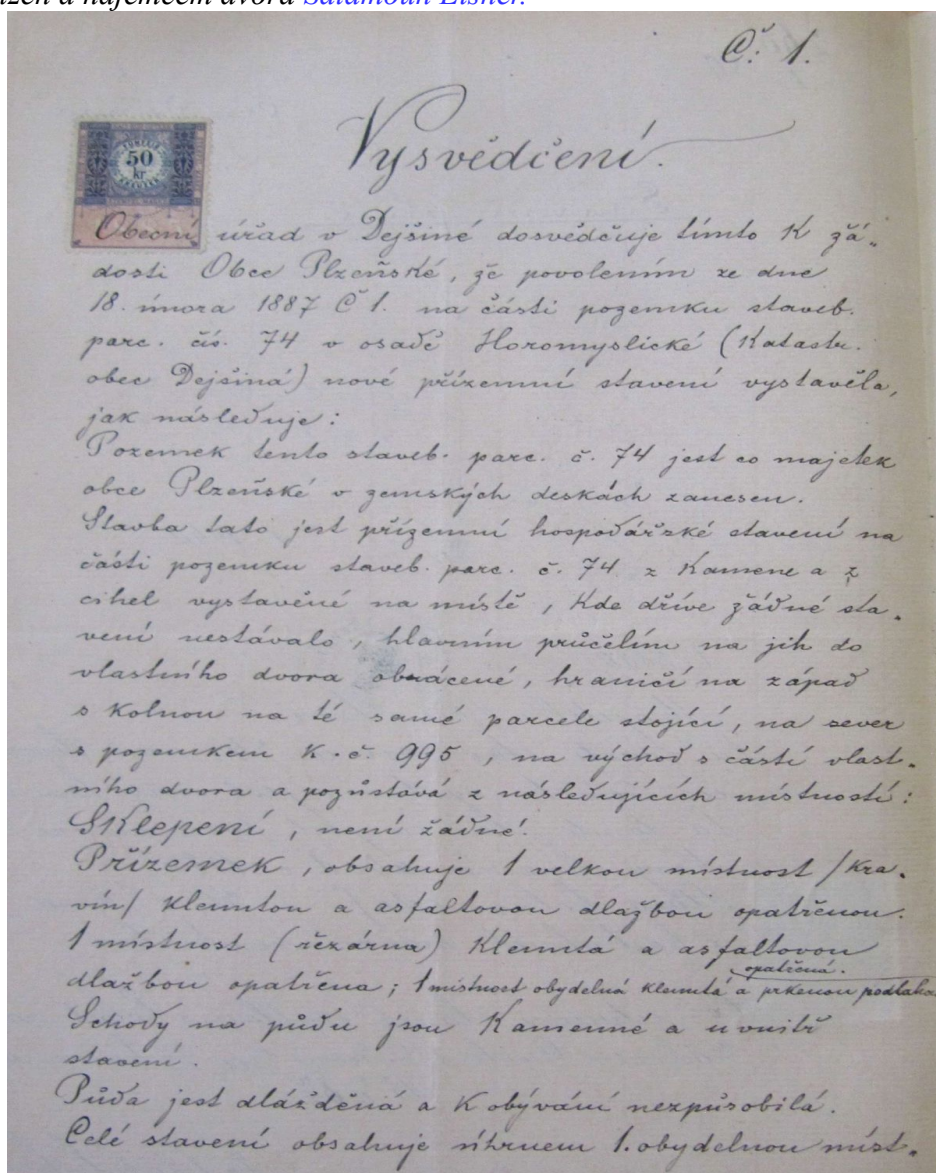 nájemcem dvora Salamoun Elsner.
Č. 1.
Vysvědčení.
50
kr
Obecní úřad v Dejšiné dosvědčuje tímto k žá„
dosti Obce Plzeňské, že povolením ze dne
18. února 1887 Č 1. na části pozemku staveb.
parc. čís. 74 v osadě Horomyslické (Katastr.
obec Dejšiná) nové přízemní stavení vystavěla,
jak následuje:
Pozemek tento staveb. parc. č. 74 jest co majetek
obce Plzeňské v zemských deskách zanesen.
Stavba tato jest přízemní hospodářské stavení na
části pozemku staveb. parc. č. 74 z Kamene a z
cihel vystavěné na místě, kde dříve žádné sta„
vení nestávalo, hlavním průčelím na jih do
vlastního dvora obrácené, hraničí na západ
s kolnou na té samé parcele stojící, na sever
s pozemkem k. č. 995, na východ s částí vlast„
ního dvora a pozůstává z následujících místností:
Sklepení, není žádné.
Přízemek, obsahuje 1 velkou místnost /kra„
vín/ klenutou a asfaltovou dlažbou opatřenou.
1 místnost (řezárna) klenutá a asfaltovou
opatřená.
dlažbou opatřena; 1 místnost obydelná klenutá a prkenou podlahou
Schody na půdu jsou Kamenné a uvnitř
stavení.
Půda jest dlážděná a k obývání nezpůsobilá.
Celé stavení obsahuje úhrnem 1. obydelnou míst„